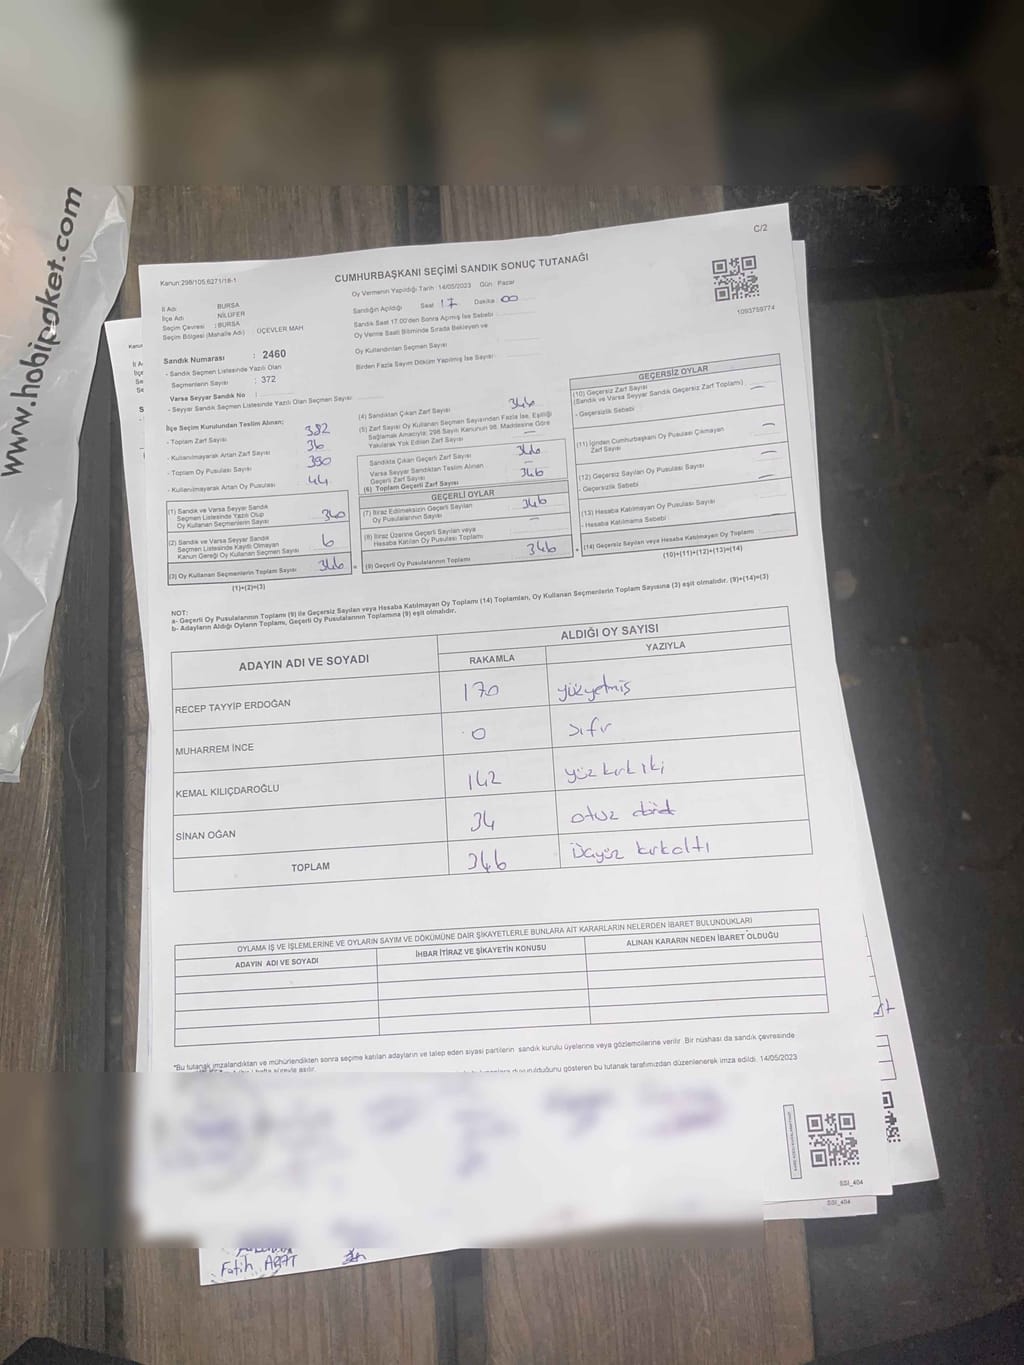 www.hobipaket.com
C/2
Kanun:298/105;6271/18-1
CUMHURBAŞKANI SEÇİMİ SANDIK SONUÇ TUTANAĞI
Oy Vermenin Yapıldığı Tarih :14/05/2023 Gün :Pazar
İl Adı BURSA
İlçe Adı NİLÜFER
Seçim Çevresi : BURSA
Seçim Bölgesi (Mahalle Adı) : ÜÇEVLER MAH
Sandığın Açıldığı Saat 17 Dakika 00
Sandık Saat 17:00'den Sonra Açılmış İse Sebebi
Oy Verme Saati Bitiminde Sırada Bekleyen ve
Oy Kullandırılan Seçmen Sayısı
Birden Fazla Sayım Döküm Yapılmış İse Sayısı
1093759774
Sandık Numarası : 2460
- Sandık Seçmen Listesinde Yazılı Olan
Seçmenlerin Sayısı : 372
Varsa Seyyar Sandık No
- Seyyar Sandık Seçmen Listesinde Yazılı Olan Seçmen Sayısı
İlçe Seçim Kurulundan Teslim Alınan;
- Toplam Zarf Sayısı 382
- Kullanılmayarak Artan Zarf Sayısı 36
- Toplam Oy Pusulası Sayısı 390
- Kullanılmayarak Artan Oy Pusulası 44
(1) Sandık ve Varsa Seyyar Sandık
Seçmen Listesinde Yazılı Olup
Oy Kullanan Seçmenlerin Sayısı 340
(2) Sandık ve Varsa Seyyar Sandık
Seçmen Listesinde Kayıtlı Olmayan
Kanun Gereği Oy Kullanan Seçmen Sayısı 6
(3) Oy Kullanan Seçmenlerin Toplam Sayısı 346
(1)+(2)=(3)
(4) Sandıktan Çıkan Zarf Sayısı 346
(5) Zarf Sayısı Oy Kullanan Seçmen Sayısından Fazla İse, Eşitliği
Sağlamak Amacıyla; 298 Sayılı Kanunun 98. Maddesine Göre
Yakılarak Yok Edilen Zarf Sayısı –
Sandıkta Çıkan Geçerli Zarf Sayısı 346
Varsa Seyyar Sandıktan Teslim Alınan
Geçerli Zarf Sayısı
(6) Toplam Geçerli Zarf Sayısı 346
GEÇERLİ OYLAR
(7) İtiraz Edilmeksizin Geçerli Sayılan
Oy Pusulalarının Sayısı 346
(8) İtiraz Üzerine Geçerli Sayılan veya
Hesaba Katılan Oy Pusulası Toplamı –
(9) Geçerli Oy Pusulalarının Toplamı 346
GEÇERSİZ OYLAR
(10) Geçersiz Zarf Sayısı
(Sandık ve Varsa Seyyar Sandık Geçersiz Zarf Toplamı) –
- Geçersizlik Sebebi
(11) İçinden Cumhurbaşkanı Oy Pusulası Çıkmayan
Zarf Sayısı –
(12) Geçersiz Sayılan Oy Pusulası Sayısı –
- Geçersizlik Sebebi
(13) Hesaba Katılmayan Oy Pusulası Sayısı –
- Hesaba Katılmama Sebebi
(14) Geçersiz Sayılan veya Hesaba Katılmayan Oy Toplamı
(10)+(11)+(12)+(13)=(14)
NOT:
a- Geçerli Oy Pusulalarının Toplamı (9) ile Geçersiz Sayılan veya Hesaba Katılmayan Oy Toplamı (14) Toplamları, Oy Kullanan Seçmenlerin Toplam Sayısına (3) eşit olmalıdır. (9)+(14)=(3)
b- Adayların Aldığı Oyların Toplamı, Geçerli Oy Pusulalarının Toplamına (9) eşit olmalıdır.
ADAYIN ADI VE SOYADI
ALDIĞI OY SAYISI
RAKAMLA YAZIYLA
RECEP TAYYİP ERDOĞAN 170 yüzyetmiş
MUHARREM İNCE 0 sıfır
KEMAL KILIÇDAROĞLU 142 yüz kırk iki
SİNAN OĞAN 34 otuz dört
TOPLAM 346 üçyüz kırkaltı
OYLAMA İŞ VE İŞLEMLERİNE VE OYLARIN SAYIM VE DÖKÜMÜNE DAİR ŞİKAYETLERLE BUNLARA AİT KARARLARIN NELERDEN İBARET BULUNDUKLARI
ADAYIN ADI VE SOYADI İHBAR İTİRAZ VE ŞİKAYETİN KONUSU ALINAN KARARIN NEDEN İBARET OLDUĞU
*Bu tutanak imzalandıktan ve mühürlendikten sonra seçime katılan adayların ve talep eden siyasi partilerin sandık kurulu üyelerine veya gözlemcilerine verilir. Bir nüshası da sandık çevresinde
duyurulduğunu gösteren bu tutanak tarafımızdan düzenlenerek imza edildi. 14/05/2023
SSI_404
SSI_404
Fatih